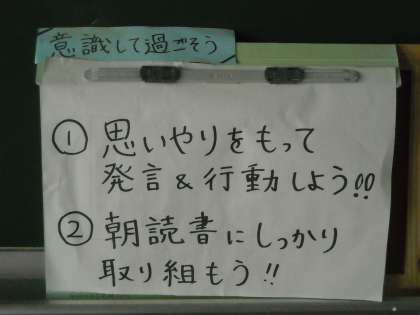 意識して過ごそう
① 思いやりをもって
発言&行動しよう!!
② 朝読書にしっかり
取り組もう!!